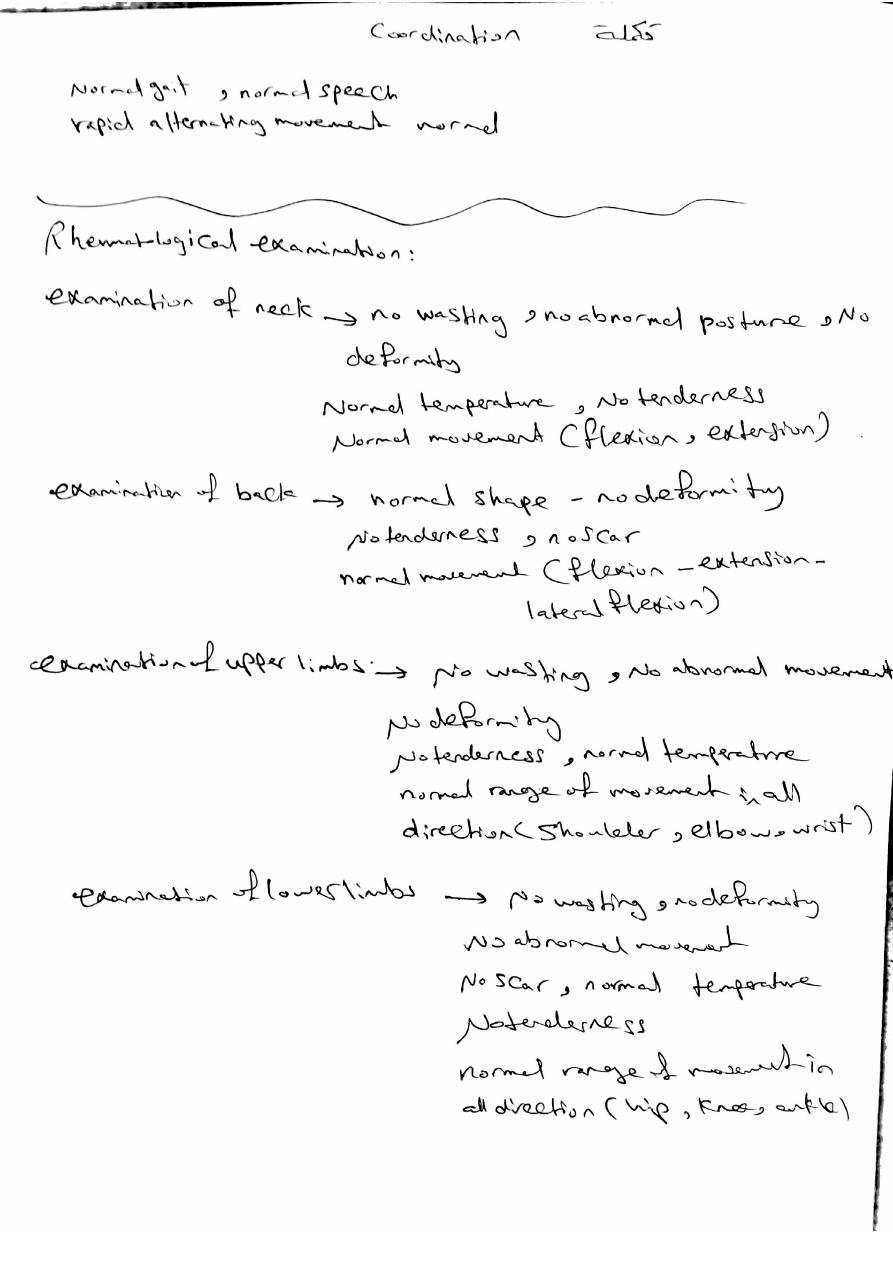 Coordination تكملة
Normal gait , normal speech
rapid alternating movement normal
Rheumatological examination:
examination of neck → no wasting , no abnormal posture , No
deformity
Normal temperature , No tenderness
Normal movement (flexion , extension)
examination of back → normal shape - no deformity
No tenderness , no scar
normal movement (flexion - extension -
lateral flexion)
examination of upper limbs → No wasting , No abnormal movement
No deformity
No tenderness , normal temperature
normal range of movement in all
direction (shoulder , elbow , wrist)
examination of lower limbs → No wasting , no deformity
No abnormal movement
No scar , normal temperature
No tenderness
normal range of movement in
all direction (hip , knee , ankle)